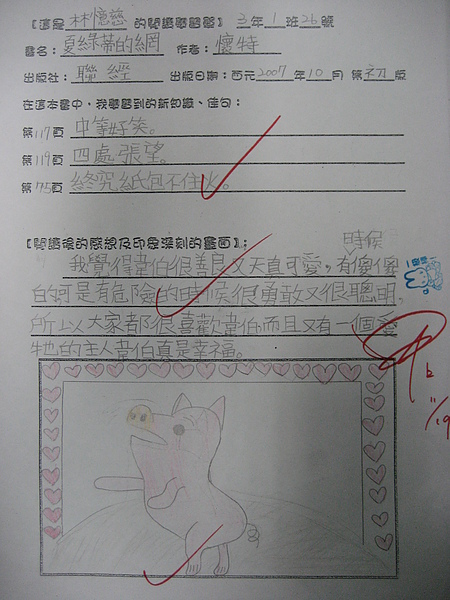 【這是 林憶慈 的閱讀學習單】 三年 1 班 26 號
書名：夏綠蒂的網 作者：懷特
出版社：聯經 出版日期：西元 2007 年 10 月 第 初 版
在這本書中，我學習到的新知識、佳句：
第 117 頁 中等好笑。
第 119 頁 四處張望。
第 75 頁 終究紙包不住火。
【閱讀後的感想及印象深刻的畫面】：
時候
我覺得韋伯很善良又天真可愛，有傻傻
的可是有危險的時候很勇敢又很聰明，
所以大家都很喜歡韋伯而且又有一個愛
牠的主人韋伯真是幸福。
11/19